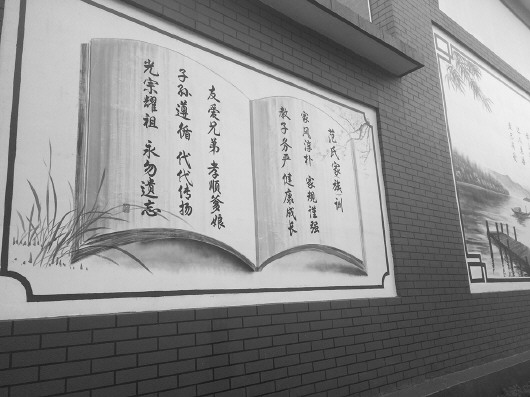 范氏家族训
家风淳朴 家规谨强
教子务严 健康成长
友爱兄弟 孝顺爹娘
子孙遵循 代代传扬
光宗耀祖 永勿遗志